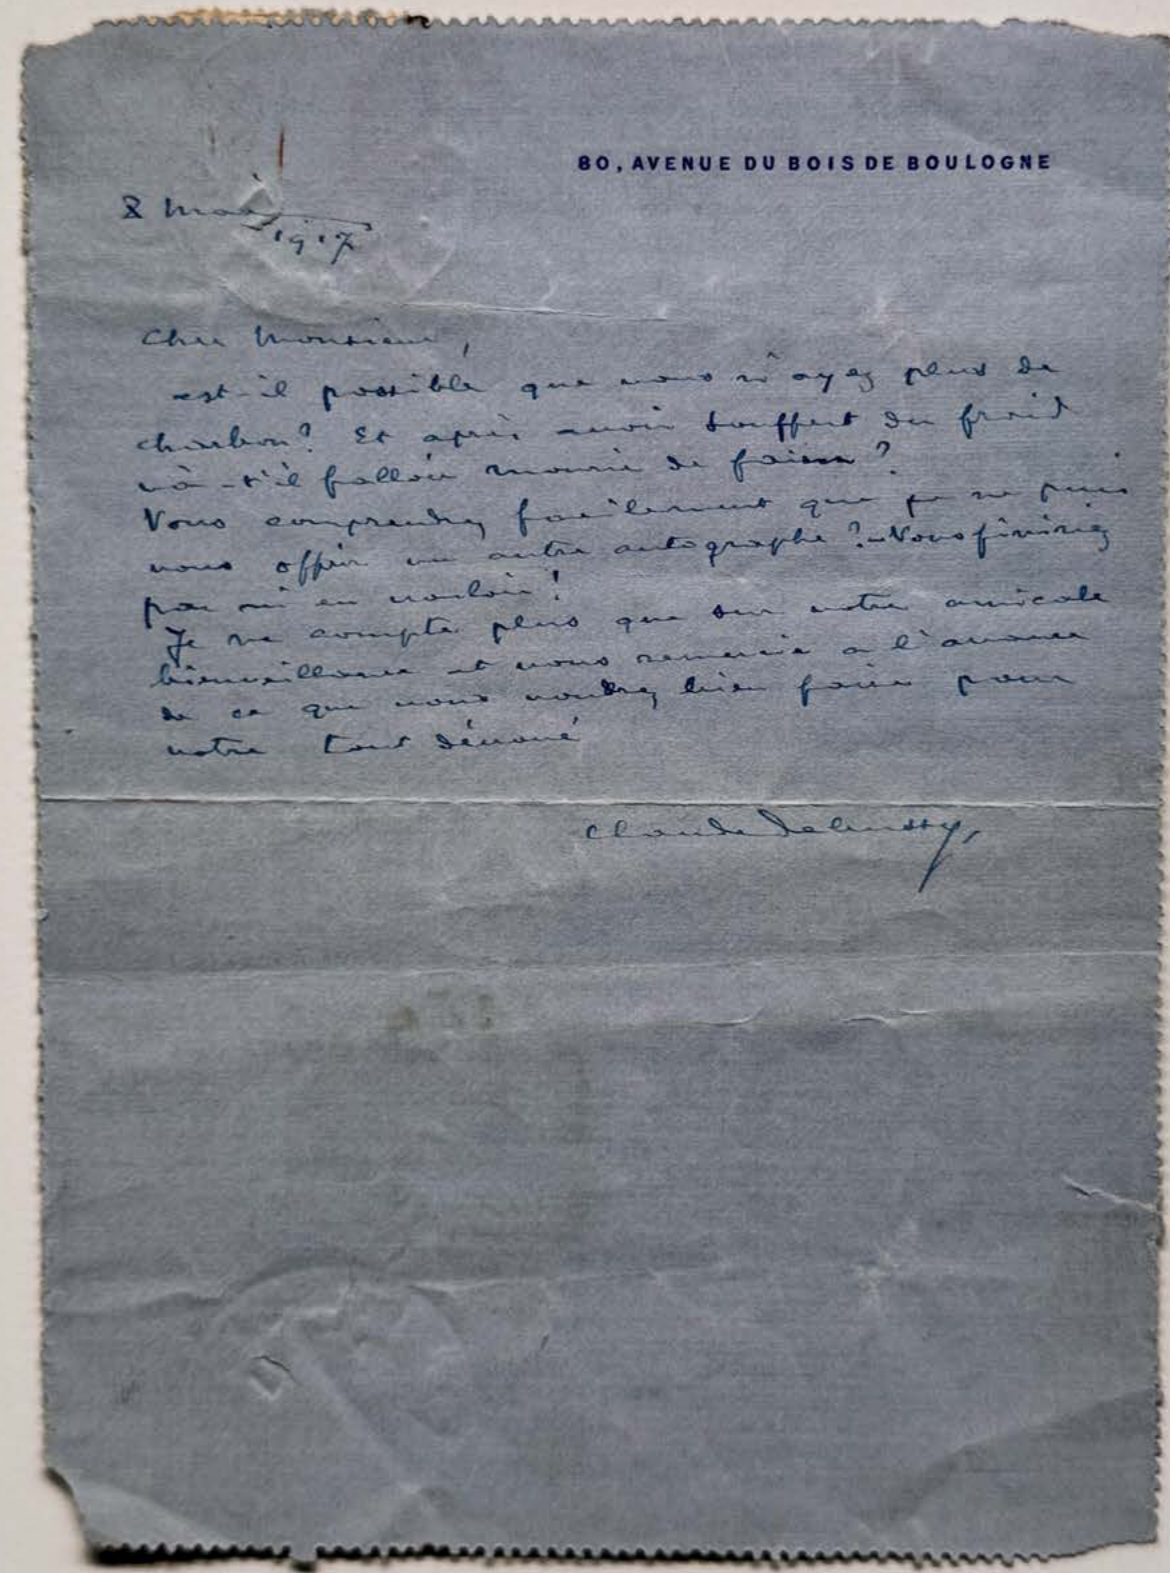 80, AVENUE DU BOIS DE BOULOGNE
8 Mai
1917
Cher Monsieur,
est-il possible que vous n'ayez plus de
charbon? Et après avoir souffert du froid
và-t'il falloir mourir de faim?
Vous comprendrez facilement que je ne puis
vous offrir un autre autographe? Vous finiriez
par m'en vouloir!
Je ne compte plus que sur votre amicale
bienveillance et vous remercie a l'avance
de ce que vous voudrez bien faire pour
votre tout dévoué
Claude Debussy,